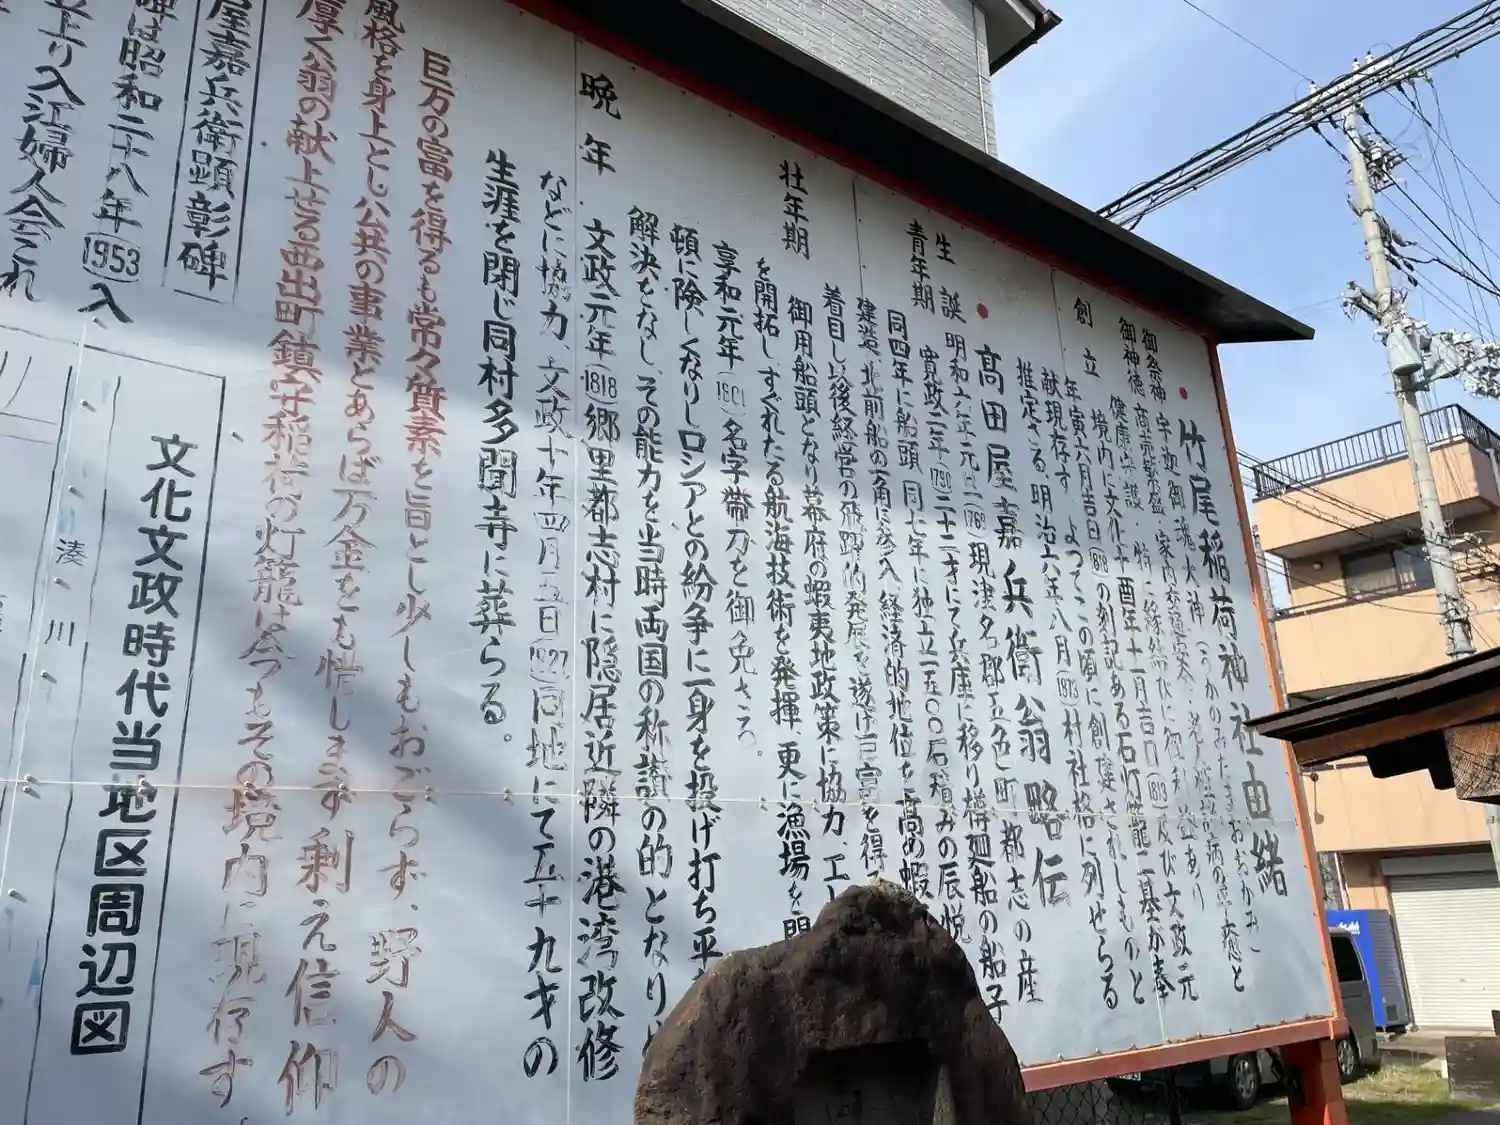 竹尾稲荷神社由緒
御祭神 宇迦御魂大神(うかのみたまおおかみ)
御神徳 商売繁盛・家内安全
健康
境内に文化十酉年十一月吉日(1813)及び文政元
年寅六月吉日(1818)の刻記ある石灯籠二基が奉
献現存す よってこの頃に創建されしものと
推定さる 明治六年八月(1873)村社格に列せらる
創立
高田屋嘉兵衛翁略伝
生誕 明和六年元旦(1769)現津名郡五色町都志の産
青年期 寛政二年(1790)二十二才にて兵庫に移り樽廻船の船子
同四年に船頭 同七年に独立一五〇〇石積みの辰悦
建造 北前船の一角に参入 経済的地位を高め蝦
着目し以後経営の飛躍的発展を遂げ巨富を得
壮年期
御用船頭となり幕府の蝦夷地政策に協力、エ
を開拓し、すぐれたる航海技術を発揮、更に漁場を開
享和元年(1801)名字帯刀を御免さる。
頓に険しくなりしロシアとの紛争に一身を投げ打ち平
解決をなし、その能力を当時両国の称讃の的となり
晩年 文政元年(1818)郷里都志村に隠居近隣の港湾改修
などに協力、文政十年四月五日(1827)同地にて五十九才の
生涯を閉じ同村多聞寺に葬らる。
巨万の富を得るも常々質素を旨とし少しもおごらず、野人の
風格を身上とし公共の事業とあらば万金をも惜しまず剰え信仰
厚く公翁の献上せる西出町鎮守稲荷の灯籠は今もその境内に現存す
屋嘉兵衛顕彰碑
碑は昭和二十八年(1953)入
上り入江婦人会これ
文化文政時代当地区周辺図
湊川